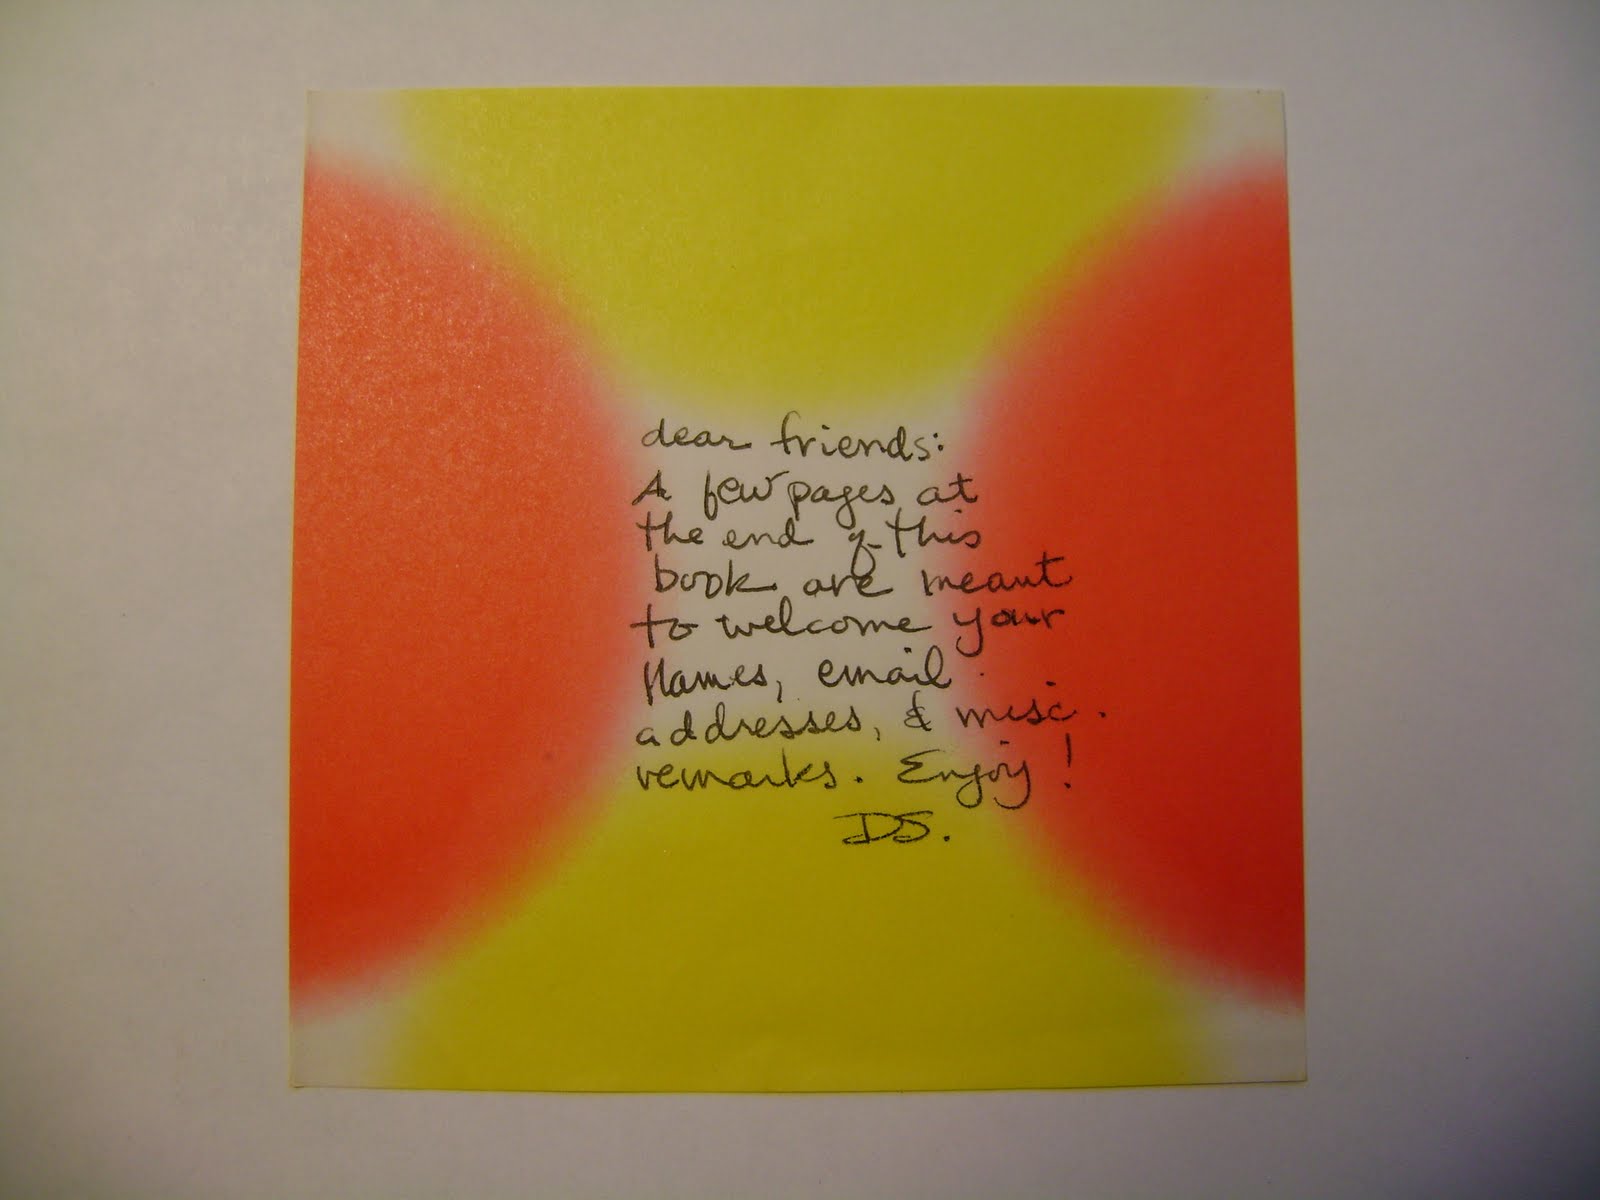 dear friends:
A few pages at
the end of this
book are meant
to welcome your
names, email
addresses, & misc.
remarks. Enjoy!
DS.